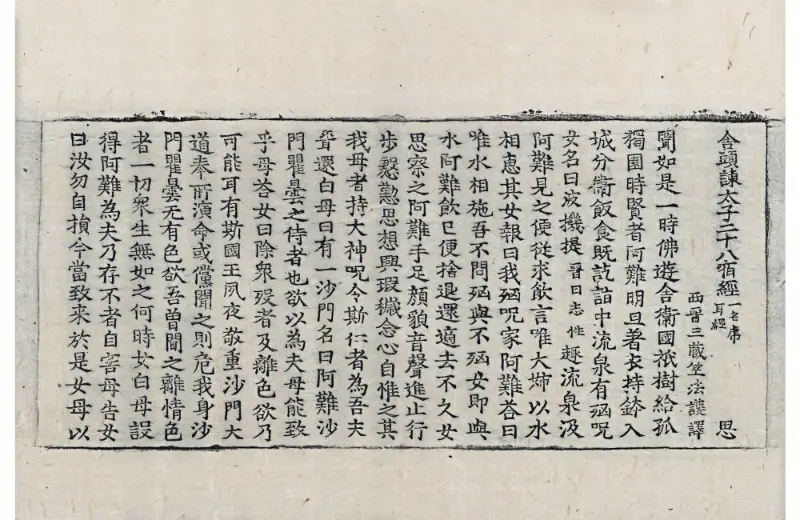 舍頭諫太子二十八宿經 一名虎耳經 思
西晉三藏竺法護譯
聞如是一時佛遊舍衛國祇樹給孤
獨園時賢者阿難明旦著衣持鉢入
城分衛飯食既訖詣中流泉有凶呪
女名曰波機提 晉曰志性 趣流泉汲
阿難見之便從求飲言唯大姉以水
相惠其女報曰我凶呪家阿難荅曰
唯水相施吾不問凶與不凶女即與
水阿難飲已便捨退還適去不久女
思察之阿難手足顏貌音聲進止行
步慇懃思想興瑕穢念心自惟之其
我母者持大神呪令斯仁者為吾夫
聟還白母曰有一沙門名曰阿難沙
門瞿曇之侍者也欲以為夫母能致
乎母荅女曰除衆歿者及離色欲乃
可能耳有斯國王夙夜敬重沙門大
道奉所演命或儻聞之則危我身沙
門瞿曇无有色欲吾曾聞之離情色
者一切衆生無如之何時女白母設
得阿難為夫乃存不者自害母告女
曰汝勿自損今當致來於是女母以